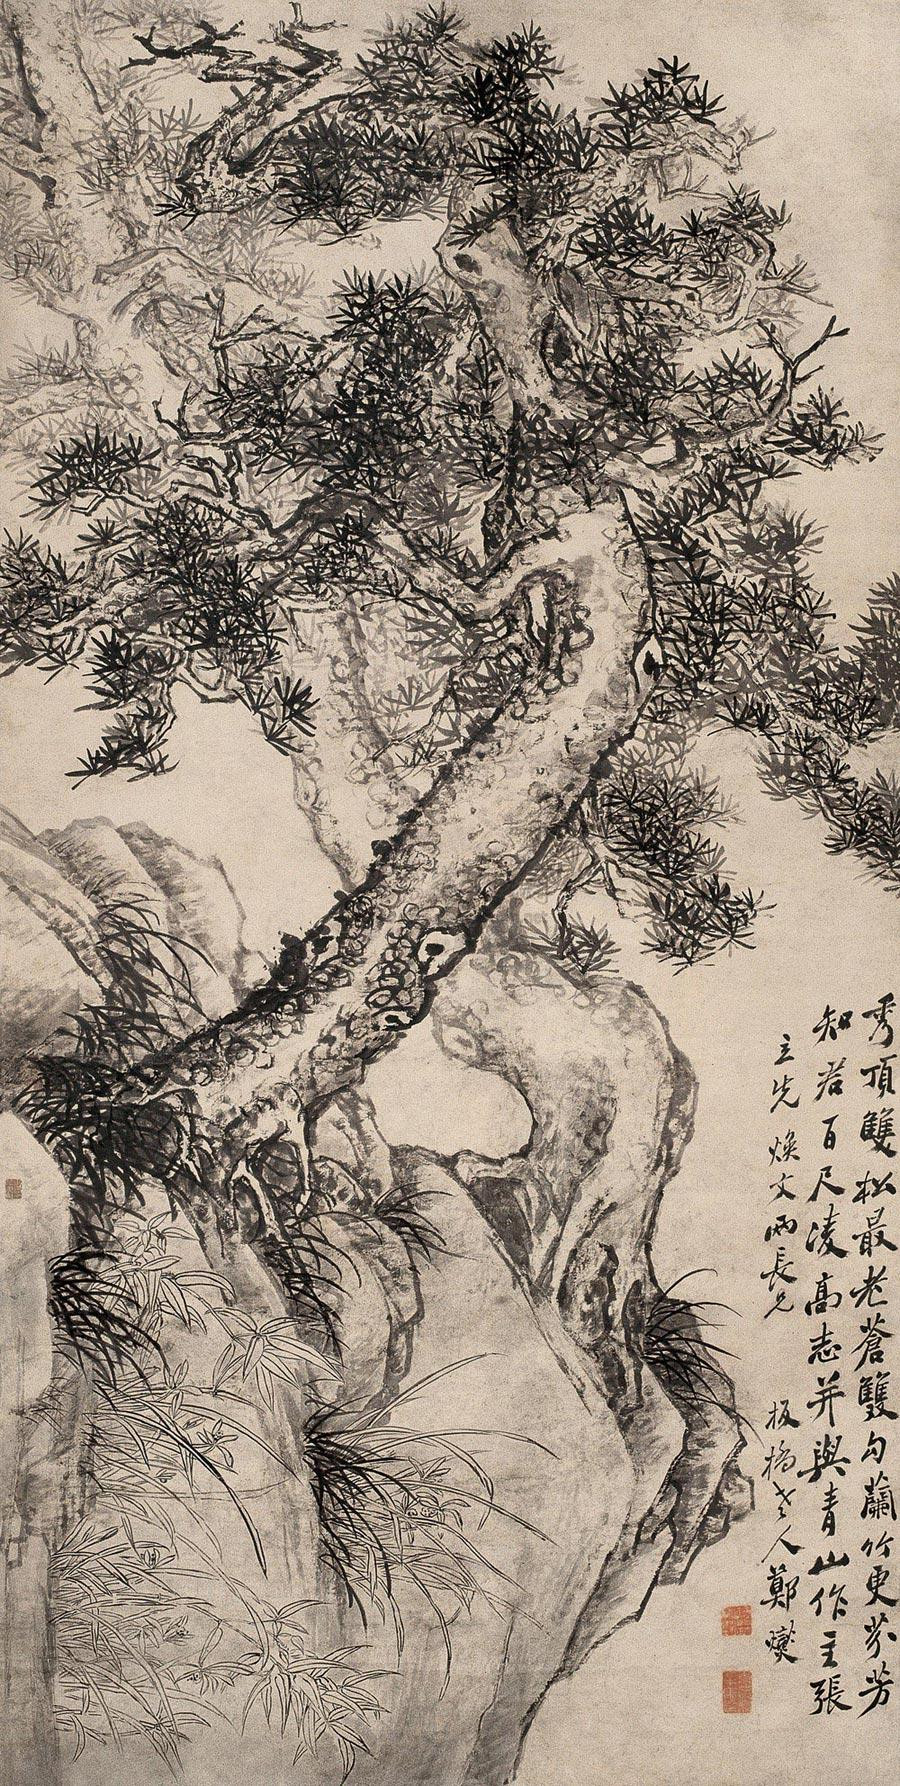 秀頂雙松最老蒼雙勾蘭竹更芬芳
知君百尺凌高志并與青山作主張
立先煥文兩長兄
板橋老人鄭燮